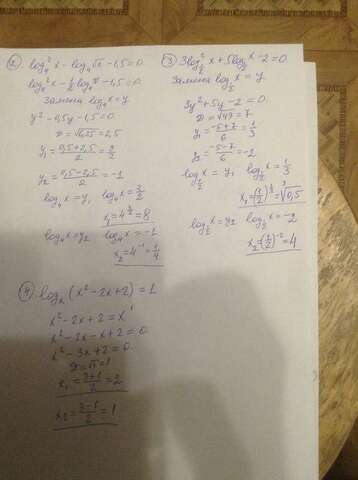 2) log₄² x - log₄ √x - 1,5 = 0.
log₄² x - ½ log₄ x - 1,5 = 0
Замена log₄ x = y.
y² - 0,5y - 1,5 = 0
D = √6,25 = 2,5
y₁ = (0,5+2,5)/2 = 3/2
y₂ = (0,5-2,5)/2 = -1
log₄ x = y₁ log₄ x = 3/2
x₁ = 4^(3/2) = 8
log₄ x = y₂ log₄ x = -1
x₂ = 4⁻¹ = 1/4
3) 3log²_(1/2) x + 5log_(1/2) x - 2 = 0.
Замена log_(1/2) x = y.
3y² + 5y - 2 = 0.
D = √49 = 7.
y₁ = (-5+7)/6 = 1/3
y₂ = (-5-7)/6 = -2
log_(1/2) x = y₁ log_(1/2) x = 1/3
x₁ = (1/2)^(1/3) = ³√0,5
log_(1/2) x = y₂ log_(1/2) x = -2
x₂ = (1/2)⁻² = 4
4) logₓ (x² - 2x + 2) = 1
x² - 2x + 2 = x¹
x² - 2x - x + 2 = 0
x² - 3x + 2 = 0.
D = √1 = 1
x₁ = (3+1)/2 = 2
x₂ = (3-1)/2 = 1